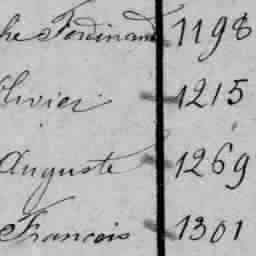 he Ferdinand 1198
livier 1215
Auguste 1269
Francois 1301